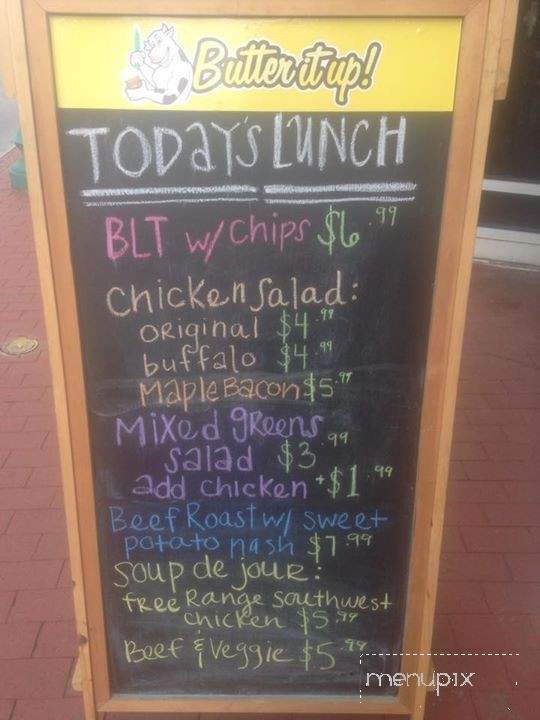 Butter it up!
TODAY'S LUNCH
BLT w/ chips $6.99
chicken Salad:
original $4.99
buffalo $4.99
Maple Bacon $5.99
Mixed greens
salad $3.99
add chicken +$1.99
Beef Roast w/ sweet
potato hash $7.99
Soup de jour:
free Range southwest
chicken $5.99
Beef & Veggie $5.99
menupix